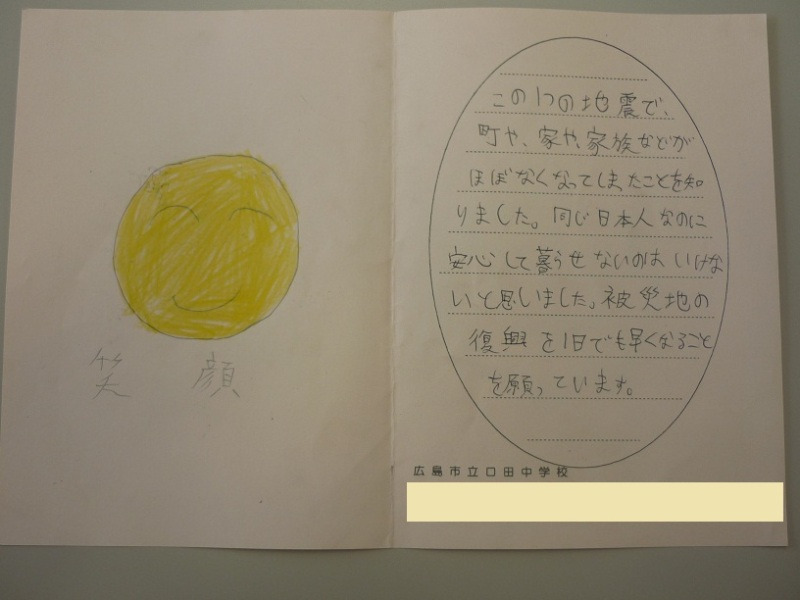 笑顔
この1つの地震で、
町や、家や、家族などが
ほぼなくなってしまったことを知
りました。同じ日本人なのに
安心して暮らせないのはいけな
いと思いました。被災地の
復興を1日でも早くなること
を願っています。
広島市立口田中学校